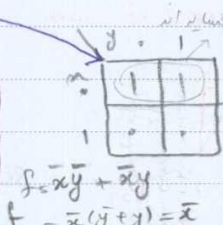 y 0 1
x
0 1 1
1 0 0
f = x̄ȳ + x̄y
f = x̄(ȳ+y) = x̄